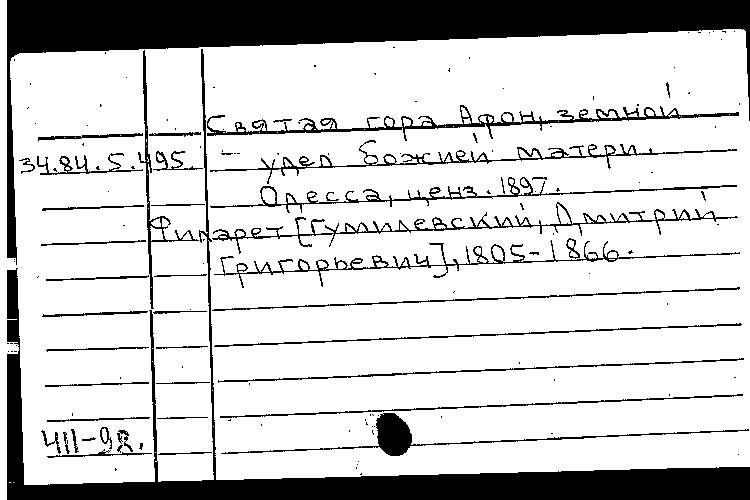 Святая гора Афон, земной
34.84.5.495. – удел божией матери.
Одесса, ценз. 1897.
Филарет [Гумилевский, Дмитрий
Григорьевич], 1805-1866.
411-98.